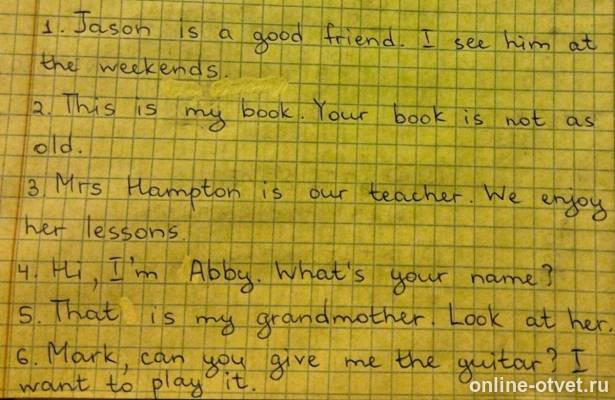 1. Jason is a good friend. I see him at
the weekends.
2. This is my book. Your book is not as
old.
3. Mrs Hampton is our teacher. We enjoy
her lessons.
4. Hi, I'm Abby. What's your name?
5. That is my grandmother. Look at her.
6. Mark, can you give me the guitar? I
want to play it.
online-otvet.ru